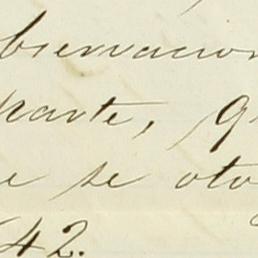 bservacion
parte, q
e se oto
642.